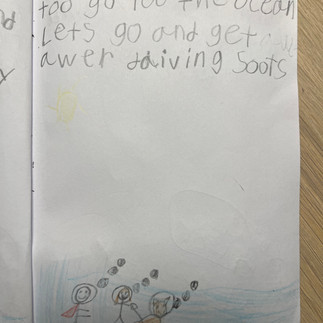 too go too the ocean
Lets go and get
awer daiving Soots